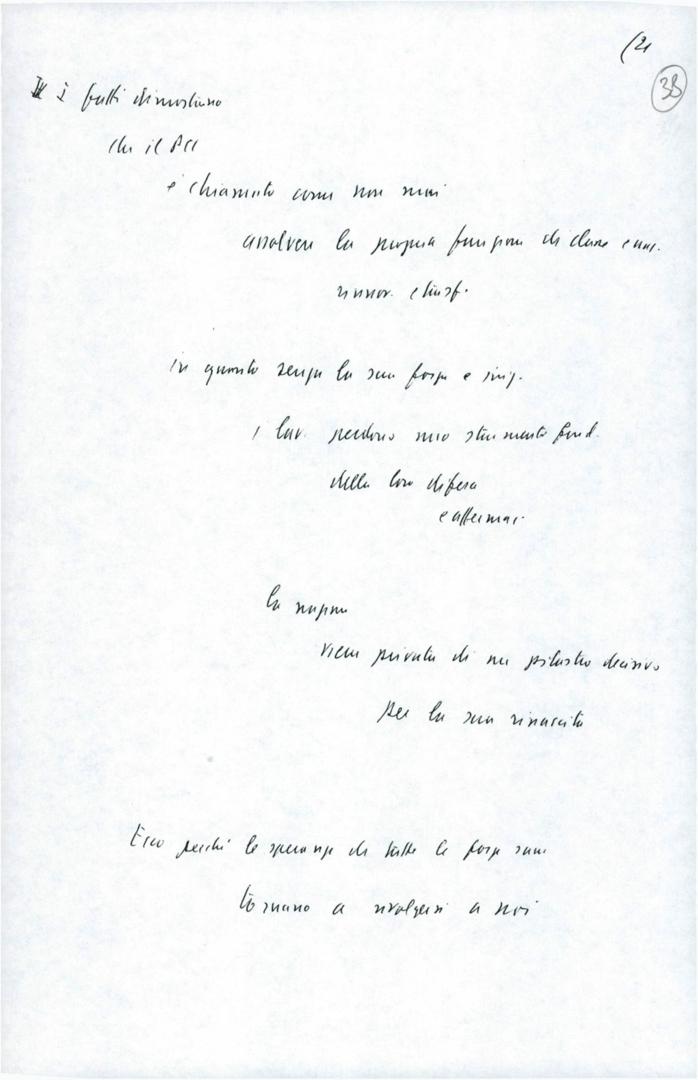 (2
38
I fatti dimostrano
che il PCI
è chiamato come non mai
assolvere la propria funzione di classe e naz.
rinnov. e trasf.
in quanto senza la sua forza e
i lav. perdono uno strumento fond.
della loro difesa
e affermaz.
la nazione
viene privata di un pilastro decisivo
per la sua rinascita
Ecco perché le speranze di tutte le forze sane
tornano a rivolgersi a noi